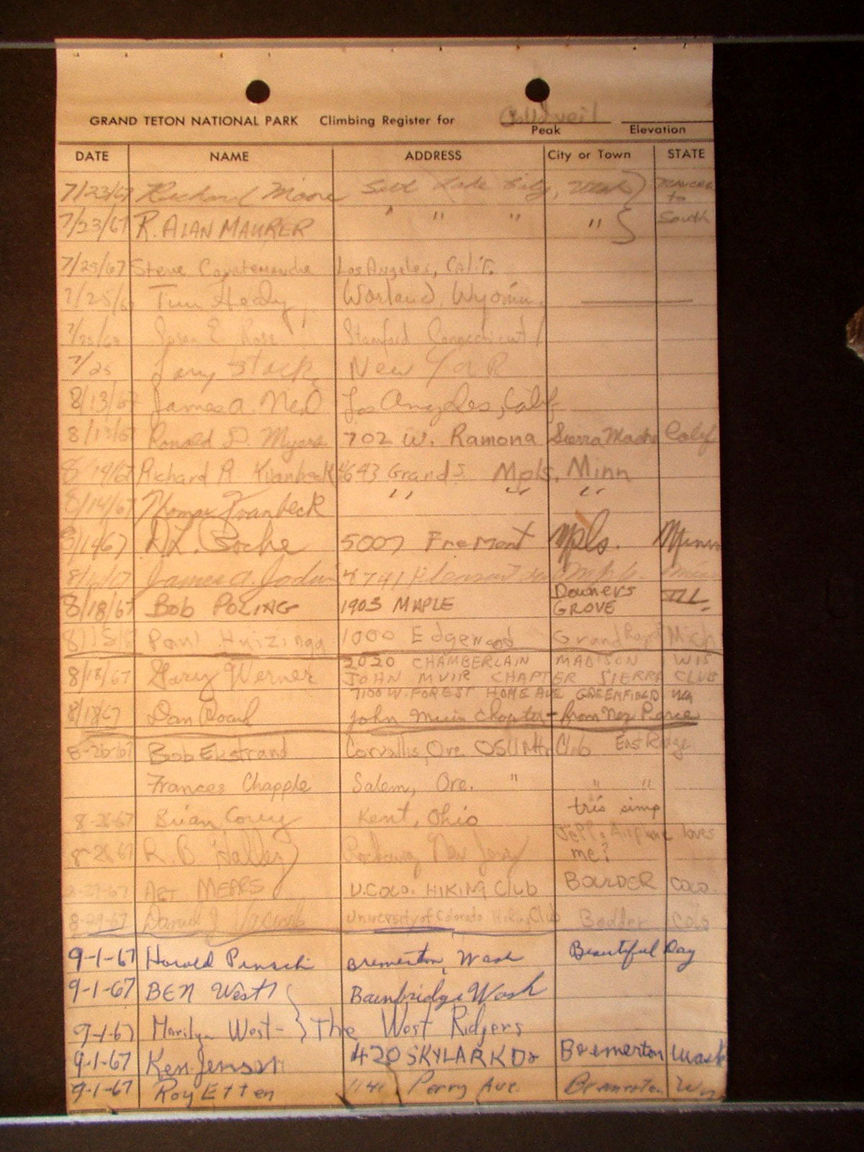 GRAND TETON NATIONAL PARK Climbing Register for
Peak Elevation
DATE NAME ADDRESS City or Town STATE
7/23/67 Richard Moore Salt Lake City, Utah }
7/23/67 R. ALAN MAURER " " " " } South
7/25/67 Steve Los Angeles, Calif.
7/25/67 Tim Worland, Wyoming
7/25/67 E. Rose Stamford Connecticut
7/25 Larry Stack New York
8/13/67 James A. Los Angeles, Calif
8/13/67 Ronald D. Myers 702 W. Ramona Sierra Madre Calif
8/14/67 Richard R. Kvanbeck 4643 Grand S. Mpls. Minn
8/14/67 Thomas Kvanbeck " " "
8/14/67 D.L. 5007 Fremont Mpls. Minn
James A. 4741 Pleasant
8/18/67 Bob POLING 1903 MAPLE Downers GROVE ILL.
Paul Huizinga 1000 Edgewood Grand Rapids Mich
8/18/67 Gary Werner 2020 CHAMBERLAIN MADISON WIS
JOHN MUIR CHAPTER SIERRA CLUB
7100 W. FOREST HOME AVE GREENFIELD
8/18/67 Dan John Muir Chapter - from Nez Perce
8-26-67 Bob Ekstrand Corvallis, Ore. OSU Mtn Club East Ridge
Frances Chapple Salem, Ore. " " "
8-28-67 Brian Corey Kent, Ohio
8-28-67 R.B. New Jersey Jeff. Airplane loves me?
8-29-67 ART MEARS U. COLO. HIKING Club BOULDER COLO.
8-29-67 Daniel J. University of Colorado Hiking Club Colo
9-1-67 Harold Bremerton, Wash Beautiful Day
9-1-67 BEN West Bainbridge Wash
9-1-67 Marilyn West - } The West Ridgers
9-1-67 Ken Jensen 420 SKYLARK Dr Bremerton Wash
9-1-67 Roy Etten 1141 Perry Ave. Bremerton Wn